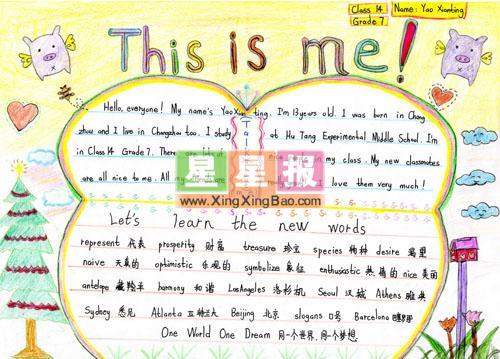 Class 14
Grade 7
Name: Yao Xianting
This is me!
Hello, everyone! My name's Yao Xian ting. I'm 13 years old. I was born in Chang
zhou and I live in Changzhou too. I study at Hu Tang Experimental Middle School. I'm
in Class 14 Grade 7. There are lots of nice in my class. My new classmates
are all nice to me. All my are I love them very much!
星星报
www.XingXingBao.com
Let's learn the new words
represent 代表 prosperity 财富 treasure 珍宝 species 物种 desire 渴望
naive 天真的 optimistic 乐观的 symbolize 象征 enthusiastic 热情的 nice 美丽
antelope 藏羚羊 harmony 和谐 LosAngeles 洛杉矶 Seoul 汉城 Athens 雅典
Sydney 悉尼 Atlanta 亚特兰大 Beijing 北京 slogans 口号 Barcelona
One World One Dream 同一个世界,同一个梦想